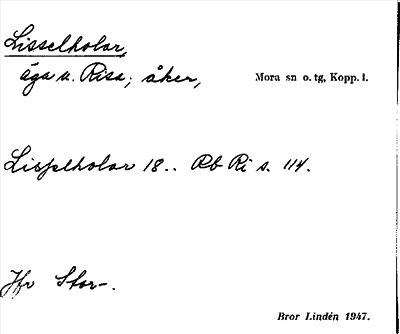 Lisselholar,
äga u. Risa; åker, Mora sn o. tg, Kopp. l.
Lisselholar 18.. Rb Ri s. 114.
Jfr Stor-.
Bror Lindén 1947.